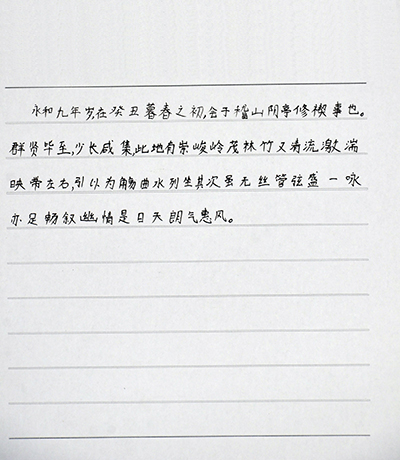 永和九年岁在癸丑暮春之初,会于稽山阴亭修禊事也。
群贤毕至,少长咸集,此地有崇峻岭茂林竹又清流激湍
映带左右,引以为觞曲水列坐其次虽无丝管弦盛一咏
亦足畅叙幽情是日天朗气惠风。